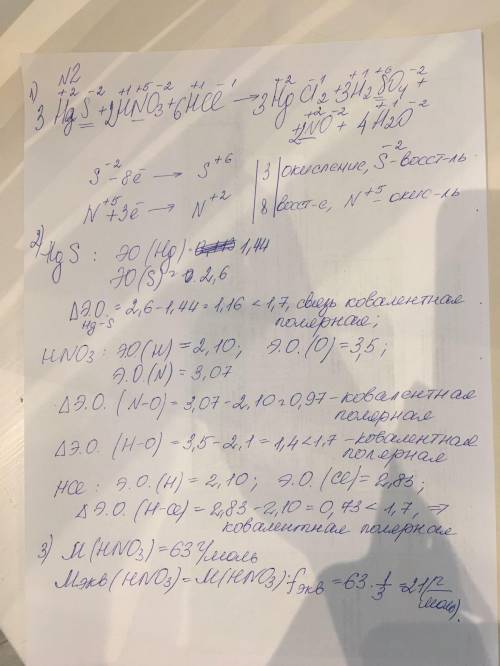 N2
1) 3 Hg⁺²S⁻² + 2H⁺¹N⁺⁵O₃⁻² + 6H⁺¹Cl⁻¹ → 3Hg⁺²Cl₂⁻¹ + 3H₂⁺¹S⁺⁶O₄⁻² +
2N⁺²O⁻² + 4H₂⁺¹O⁻²
S⁻² - 8ē → S⁺⁶ | 3 | окисление, S⁻² - восст-ль
N⁺⁵ + 3ē → N⁺² | 8 | восст-е, N⁺⁵ - окис-ль
2) HgS: ЭО (Hg) = 1,44
ЭО (S) = 2,6
ΔЭ.О. Hg-S = 2,6 - 1,44 = 1,16 < 1,7, связь ковалентная
полярная;
HNO₃: ЭО (H) = 2,10; Э.О. (O) = 3,5;
Э.О. (N) = 3,07
ΔЭ.О. (N-O) = 3,07 - 2,10 = 0,97 - ковалентная
полярная
ΔЭ.О. (H-O) = 3,5 - 2,1 = 1,4 < 1,7 - ковалентная
полярная
HCl: Э.О. (H) = 2,10; Э.О. (Cl) = 2,83;
ΔЭ.О. (H-Cl) = 2,83 - 2,10 = 0,73 < 1,7, ⇒
ковалентная полярная
3) M(HNO₃) = 63 г/моль
Mэкв (HNO₃) = M(HNO₃) · fэкв = 63 · 1/3 = 21 (г/моль).